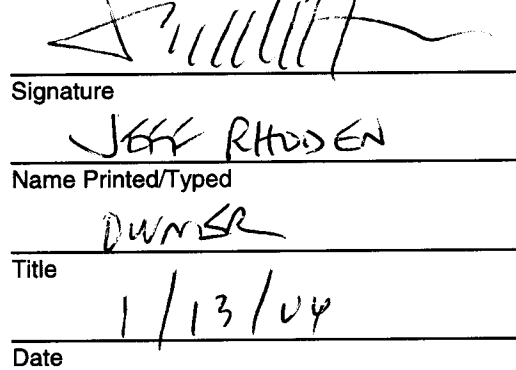 Signature
JEFF RHODEN
Name Printed/Typed
OWNER
Title
1/13/04
Date